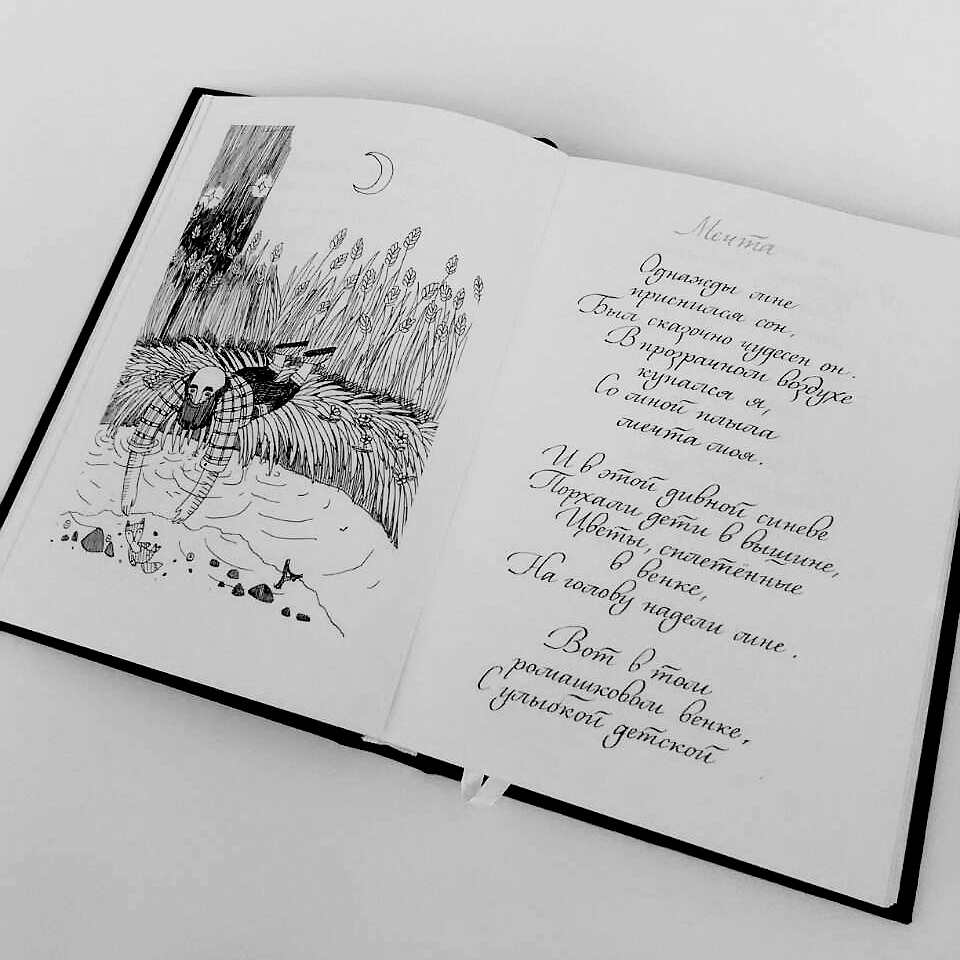 Мечта
Однажды мне
приснился сон,
Был сказочно чудесен он.
В прозрачном воздухе
купался я,
Со мной плыла
мечта моя.
И в этой дивной синеве
Порхали дети в вышине,
Цветы, сплетённые
в венке,
На голову надели мне.
Вот в том
ромашковом венке,
С улыбкой детской